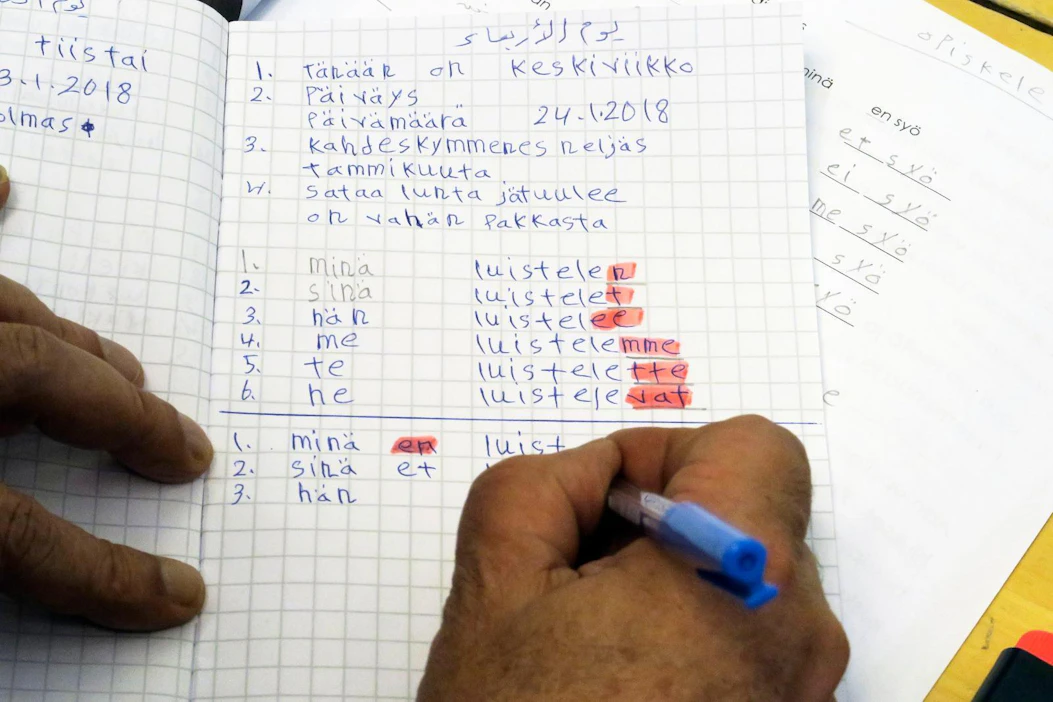 tiistai
3.1.2018
olmas
يوم الأربعاء
1. Tänään on keskiviikko
2. Päiväys
Päivämäärä 24.1.2018
3. kahdeskymmenes neljäs
tammikuuta
4. sataa lunta jätuulee
on vahän pakkasta
1. minä luistelen
2. sinä luistelet
3. hän luistelee
4. me luistelemme
5. te luistelette
6. he luistelevat
1. minä en luist
2. sinä et
3. hän
opiskele
minä
en syö
et syö
ei syö
me syö
syö
yö
e